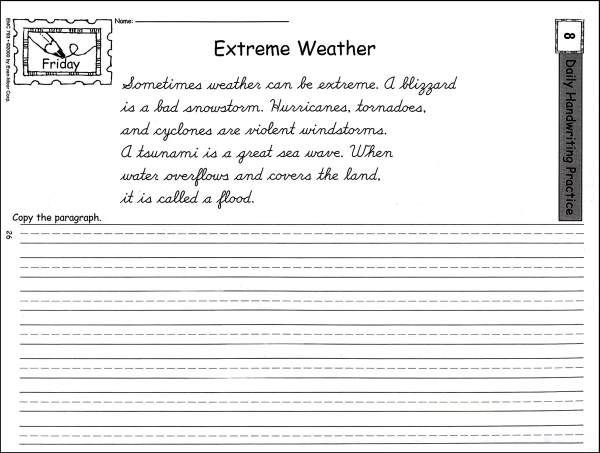 Name:
Extreme Weather
Friday
Sometimes weather can be extreme. A blizzard
is a bad snowstorm. Hurricanes, tornadoes,
and cyclones are violent windstorms.
A tsunami is a great sea wave. When
water overflows and covers the land,
it is called a flood.
Copy the paragraph.
8
Daily Handwriting Practice
26